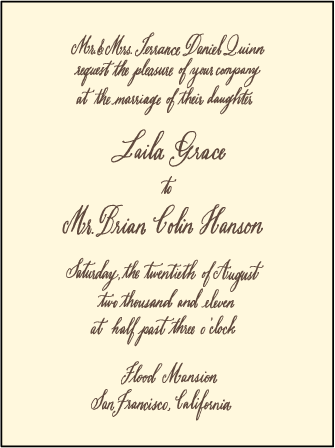 Mr. & Mrs. Terrance Daniel Quinn
request the pleasure of your company
at the marriage of their daughter
Laila Grace
to
Mr. Brian Colin Hanson
Saturday, the twentieth of August
two thousand and eleven
at half past three o'clock
Flood Mansion
San Francisco, California